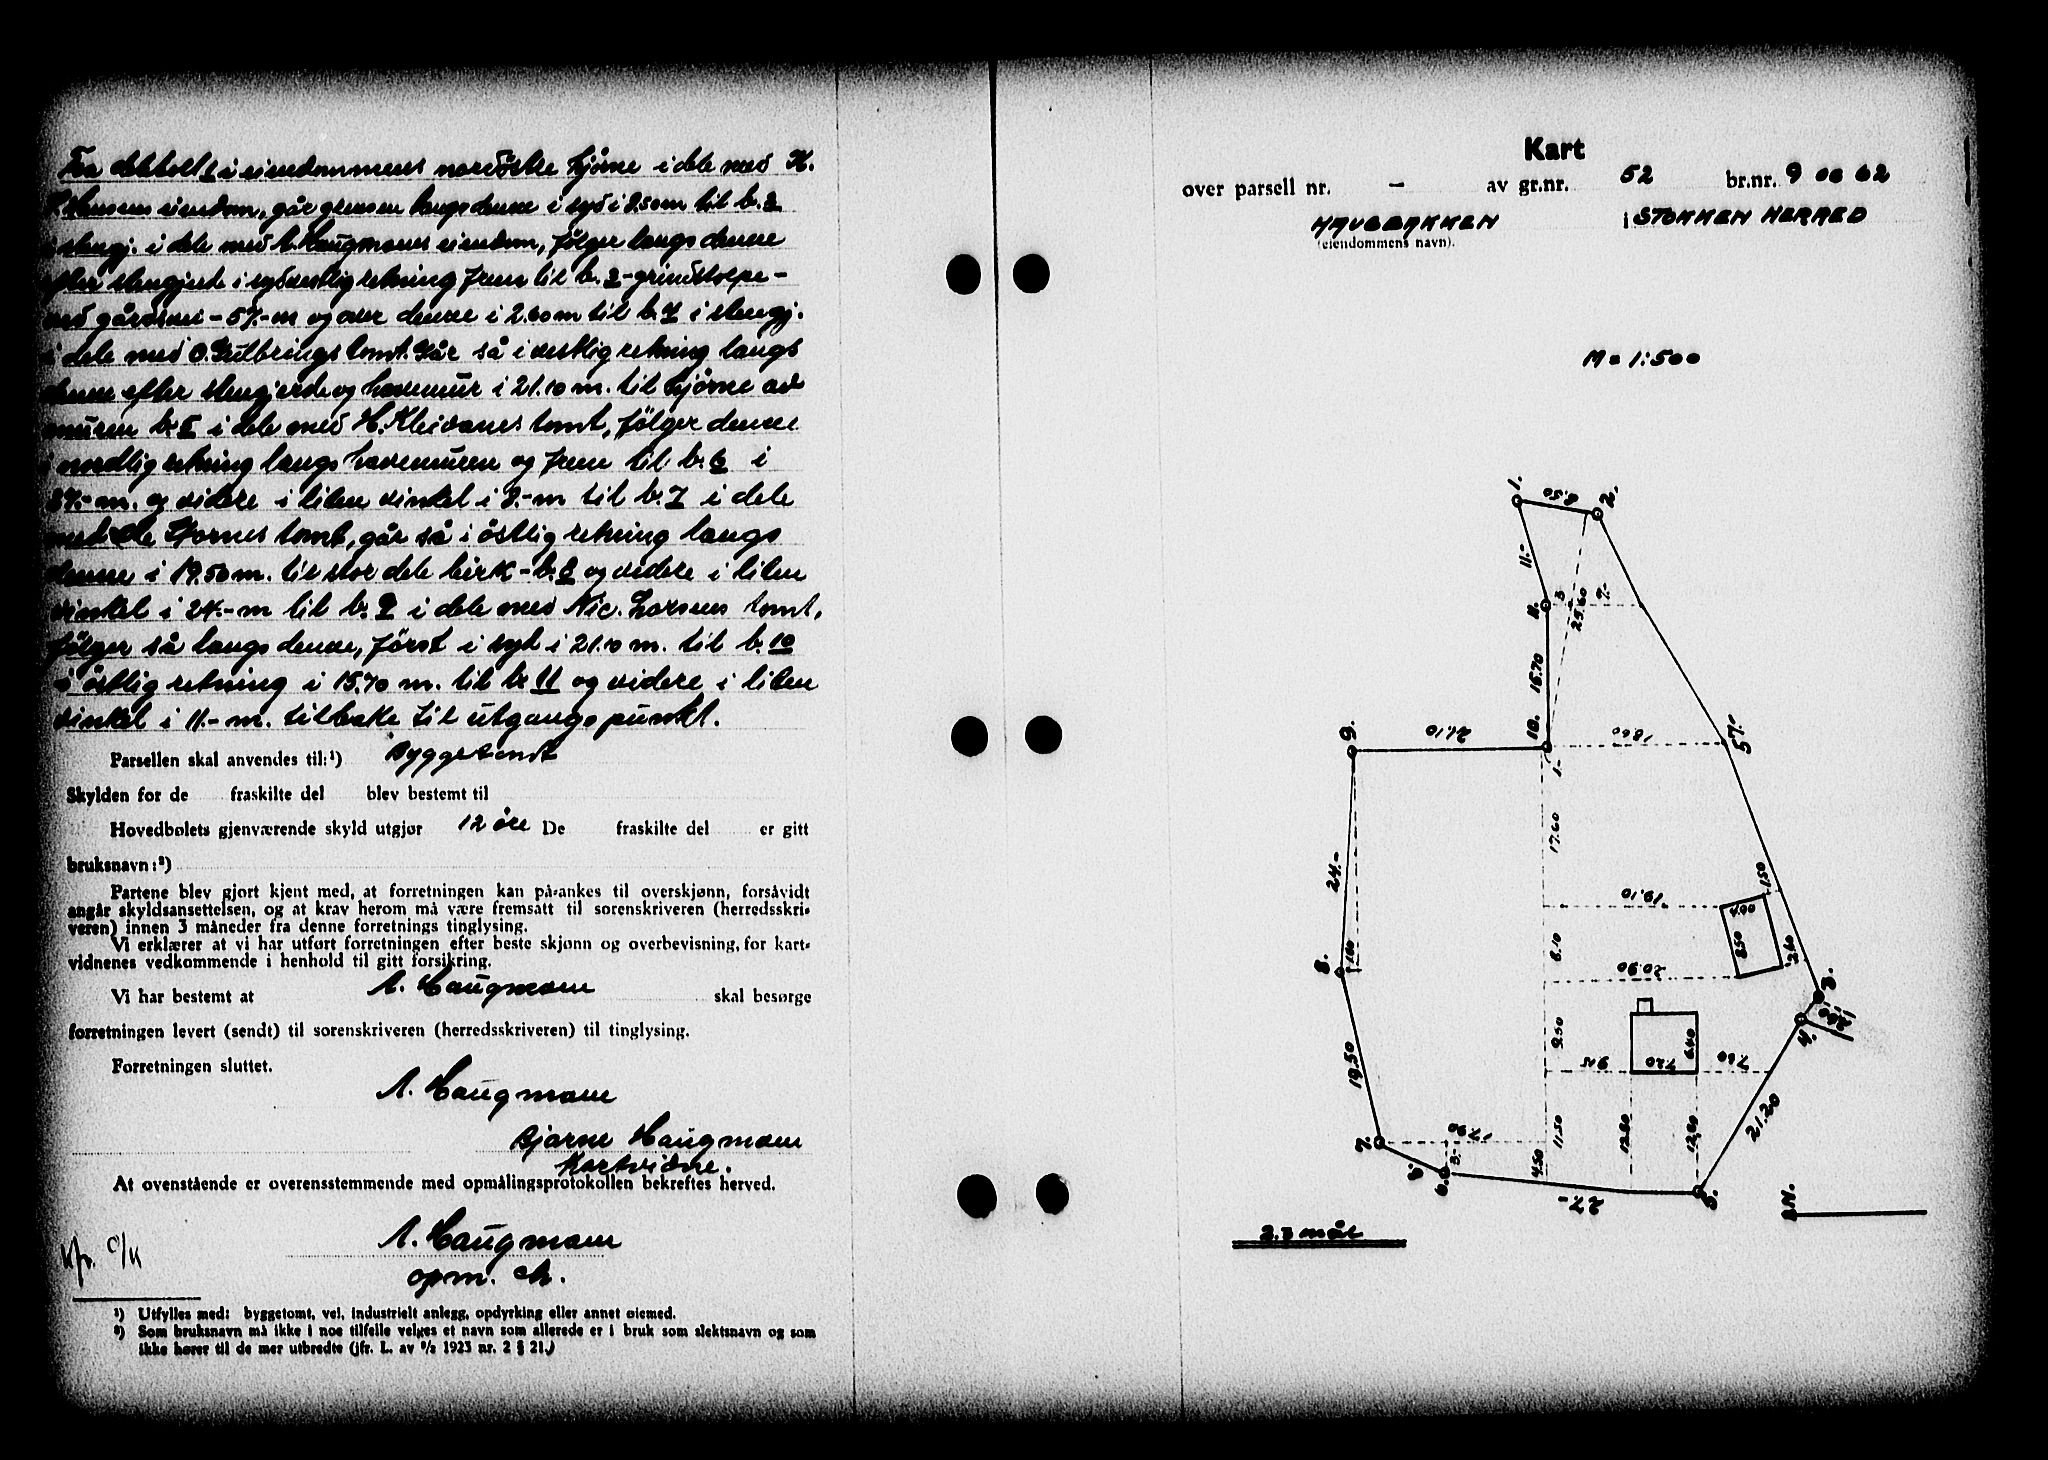 Fra delebolt 1 i eiendommens nordöstre hjörne i dele med K.
Hansens eiendom, går grensen langs denne i syd i 8.50 m til b. 2
i stengj. i dele med A. Haugmanns eiendom, følger langs denne
efter stengjerde i sydvestlig retning frem til b. 3 - grindstolpe -
ved gårdsvei - 57.- m og over denne i 2.60 m til b. 4 i stengj.
i dele med O. Gulbrings tomt. Går så i vestlig retning langs
denne efter stengjerde og havemur i 21.20 m. til hjörne av
muren b. 5 i dele med H. Kleivanes tomt, fölger denne
i nordlig retning langs havemuren og frem til b. 6 i
27.- m. og videre i liten vinkel i 8.- m til b. 7 i dele
med Ole Stornes tomt, går så i östlig retning langs
denne i 19.50 m. til stor dele birk - b. 8 og videre i liten
vinkel i 24.- m til b. 9 i dele med Nic. Larsens tomt,
fölger så langs denne, först i syd i 21.10 m. til b. 10
i östlig retning i 15.70 m. til b. 11 og videre i liten
vinkel i 11.- m. tilbake til utgangspunkt.
Parsellen skal anvendes til:¹) Byggetomt
Skylden for de fraskilte del blev bestemt til
Hovedbølets gjenværende skyld utgjør 12 öre De fraskilte del er gitt
bruksnavn:²)
Partene blev gjort kjent med, at forretningen kan på-ankes til overskjønn, forsåvidt
angår skyldsansettelsen, og at krav herom må være fremsatt til sorenskriveren (herredsskri-
veren) innen 3 måneder fra denne forretnings tinglysing.
Vi erklærer at vi har utført forretningen efter beste skjønn og overbevisning, for kart-
vidnenes vedkommende i henhold til gitt forsikring.
Vi har bestemt at A. Haugmann skal besørge
forretningen levert (sendt) til sorenskriveren (herredsskriveren) til tinglysing.
Forretningen sluttet.
A. Haugmann
Bjarne Haugmann
Kartvidne.
At ovenstående er overensstemmende med opmålingsprotokollen bekreftes herved.
A. Haugmann
opm. ch.
¹) Utfylles med: byggetomt, vei, industrielt anlegg, opdyrking eller annet øiemed.
²) Som bruksnavn må ikke i noe tilfelle velges et navn som allerede er i bruk som slektsnavn og som
ikke hører til de mer utbredte (jfr. L. av ⁹/₂ 1923 nr. 2 § 21.)
Kart
over parsell nr. - av gr.nr. 52 br.nr. 9 og 62
HAUGBAKKEN i STOKKEN HERRED
(eiendommens navn).
M = 1:500
1.
8.50
2.
11.-
11.
3
25.60
9.-
15.70
9.
21.10
10.
18.60
57.-
1.-
24.-
17.60
19.10
1.50
4.90
8.50
2.60
8.
1.60
6.10
20.90
3.
2.60
4.
19.50
9.50
9.15
7.20
6.40
7.60
21.20
7.
17.90
11.50
12.80
12.60
8.
6.
3.-
4.50
27.-
5.
2.3 mål